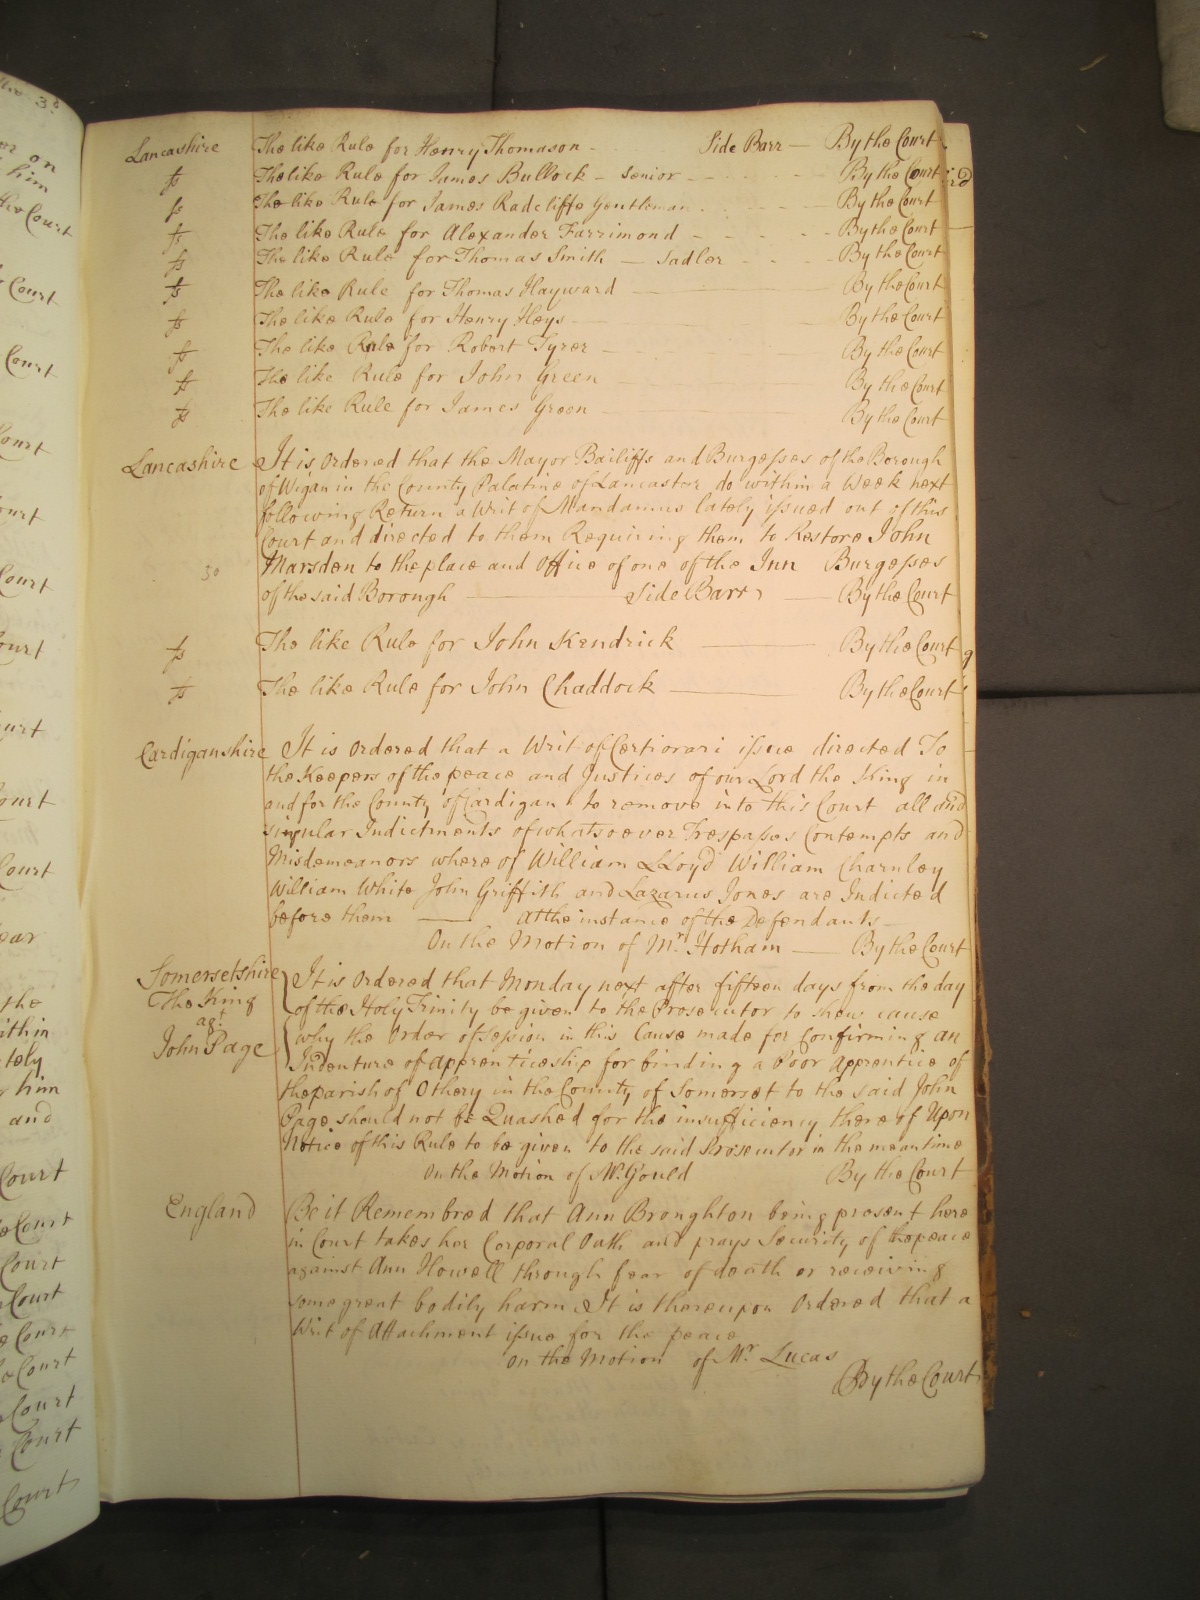 Lancashire The like Rule for Henry Thomason - Side Barr — By the Court
The like Rule for James Bullock - senior - By the Court
The like Rule for James Radcliffe Gentleman By the Court
The like Rule for Alexander Farrimond - By the Court
The like Rule for Thomas Smith — Sadler - By the Court
The like Rule for Thomas Hayward By the Court
The like Rule for Henry Heys By the Court
The like Rule for Robert Tyrer By the Court
The like Rule for John Green By the Court
The like Rule for James Green By the Court
Lancashire It is Ordered that the Mayor Bailiffs and Burgesses of the Borough
of Wigan in the County Palatine of Lancaster do within a Week next
following Return a Writ of Mandamus lately issued out of this
Court and directed to them Requiring them to Restore John
Marsden to the place and Office of one of the Inn Burgesses
of the said Borough — Side Barr — By the Court
The like Rule for John Kendrick — By the Court
The like Rule for John Chaddock — By the Court
Cardiganshire It is Ordered that a Writ of Certiorari issue directed To
the Keepers of the peace and Justices of our Lord the King in
and for the County of Cardigan to remove into this Court all and
singular Indictments of whatsoever Trespasses Contempts and
Misdemeanors where of William LLoyd William Charnley
William White John Griffith and Lazarus Jones are Indicted
before them — At the instance of the Defendants -
On the Motion of Mr. Hotham — By the Court
Somersetshire It is Ordered that Monday next after fifteen days from the day
The King of the Holy Trinity be given to the Prosecutor to shew cause
agt. why the Order of Session in this Cause made for Confirming an
John Page Indenture of Apprenticeship for binding a Poor Apprentice of
the parish of Othery in the County of Somerset to the said John
Page should not be Quashed for the insufficiency there of Upon
Notice of this Rule to be given to the said Prosecutor in the meantime
On the Motion of Mr. Gould By the Court
England Be it Remembred that Ann Broughton being present here
in Court takes her Corporal Oath and prays Security of the peace
against Ann Howell through fear of death or receiving
some great bodily harm It is thereupon Ordered that a
Writ of Attachment issue for the peace
On the Motion of Mr. Lucas
By the Court